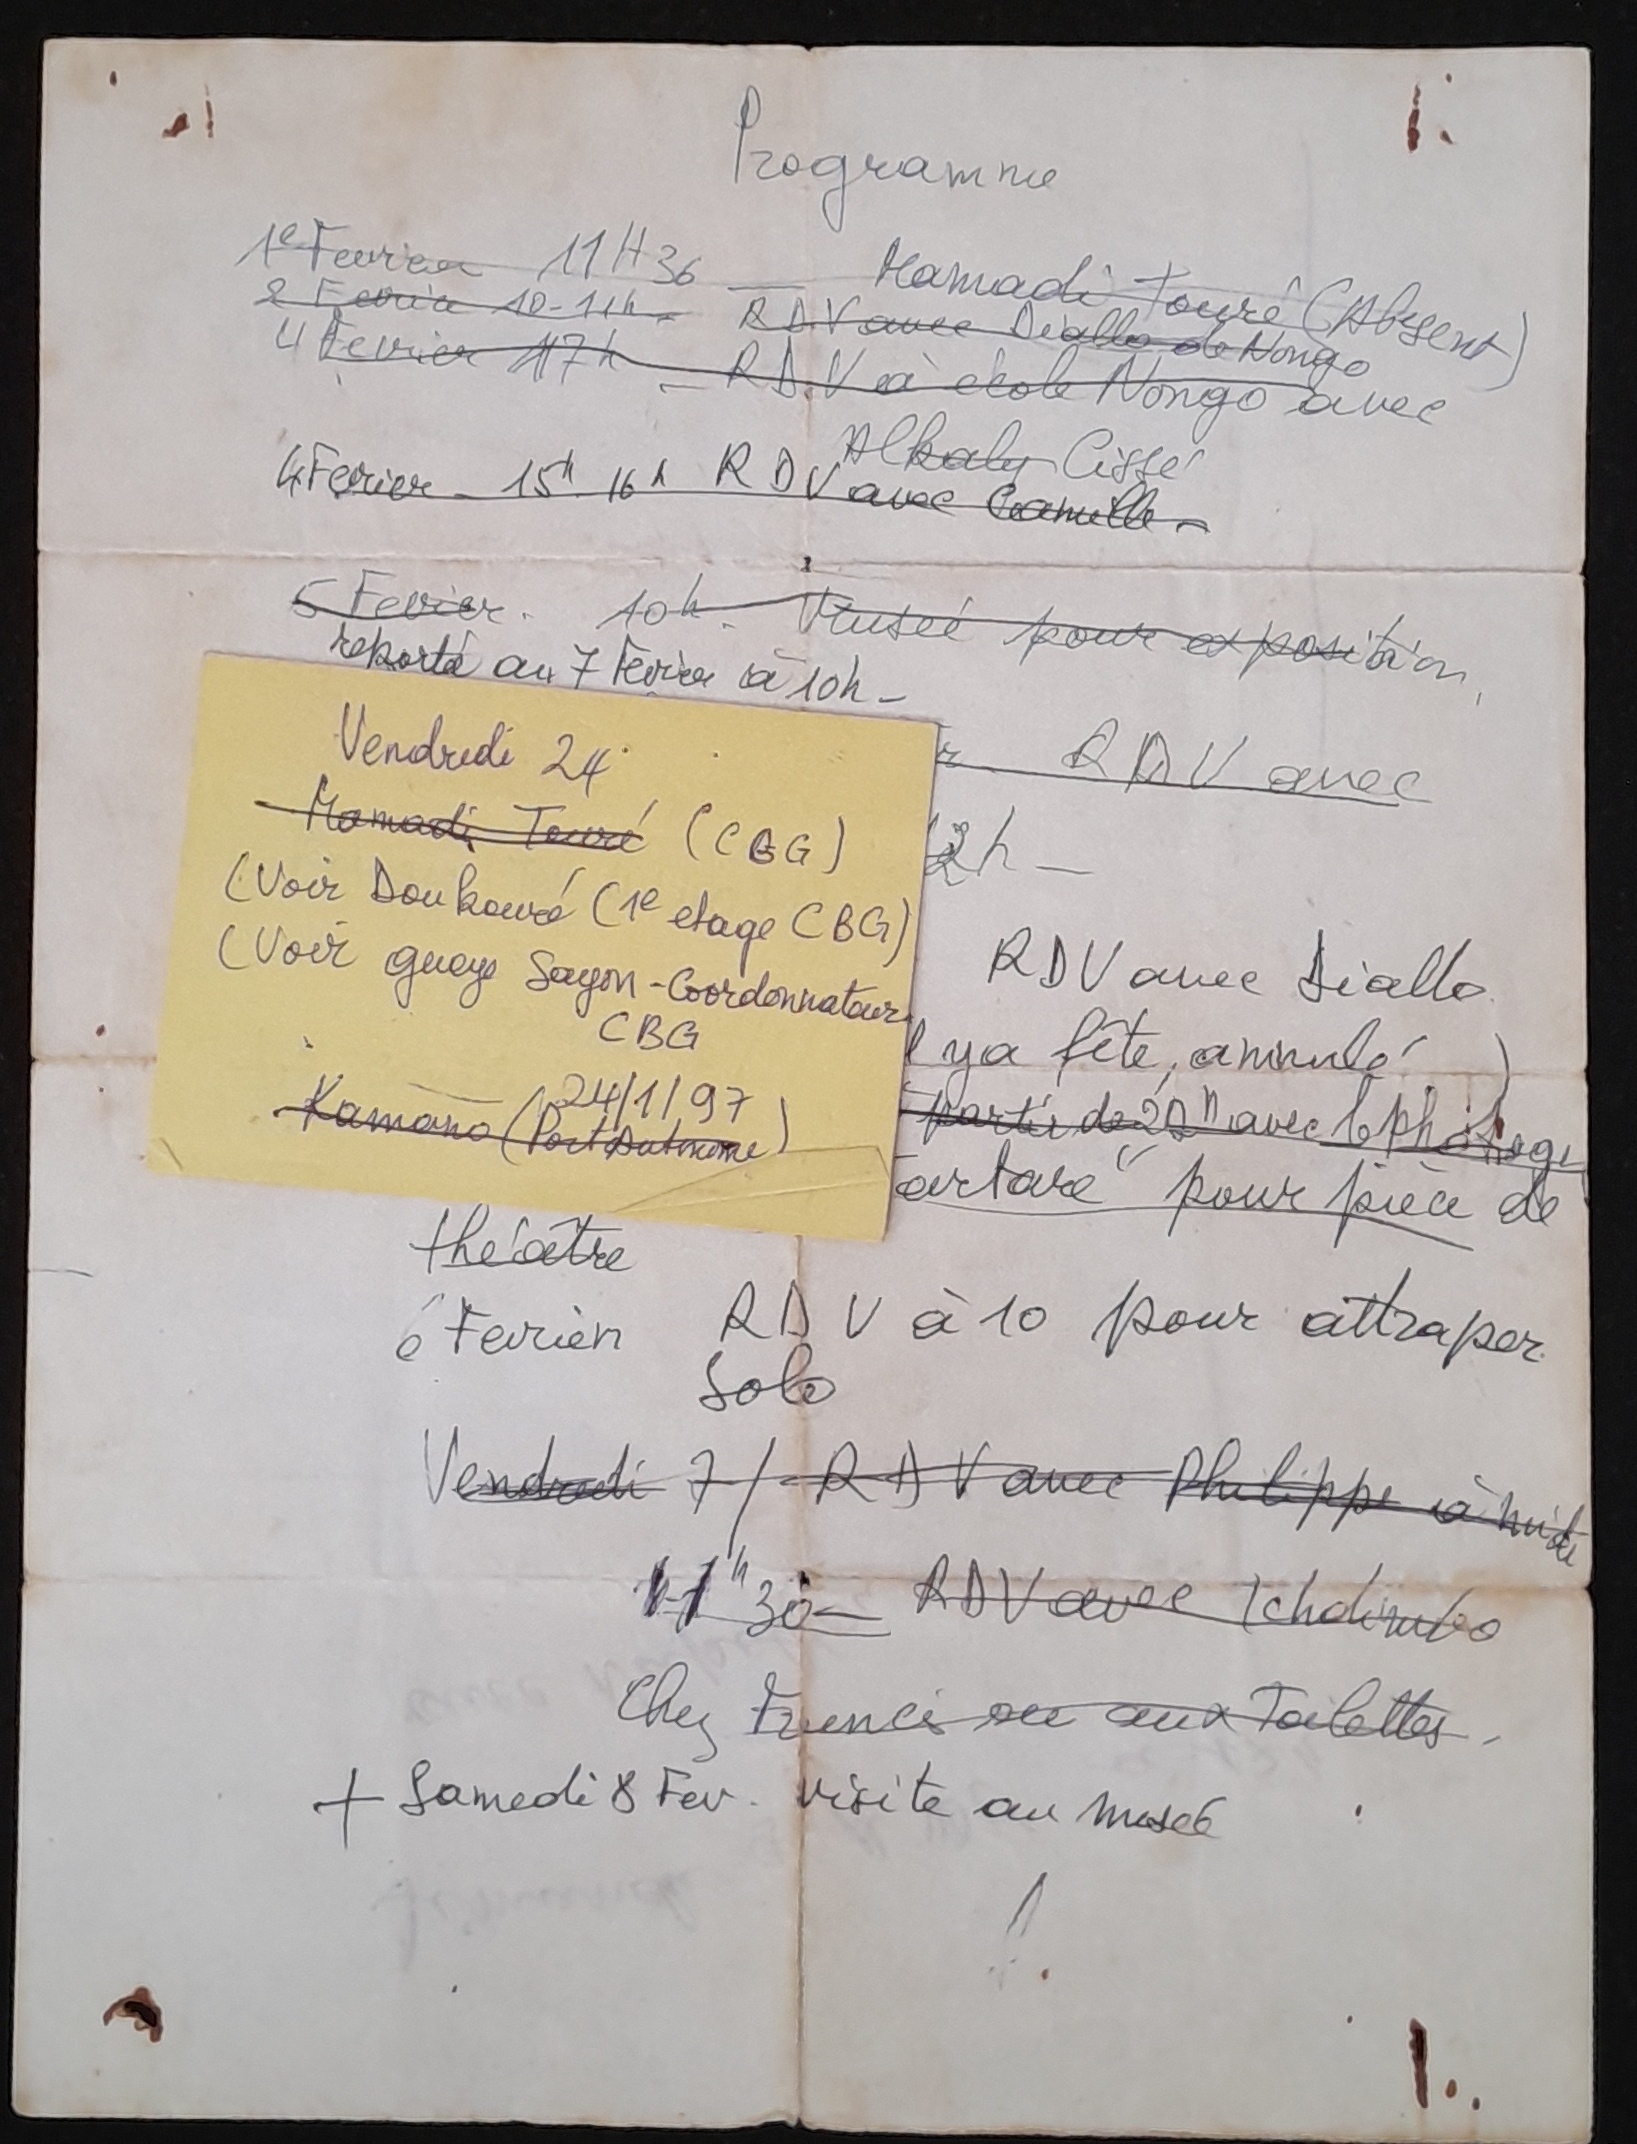 Programme
1e Fevrier 11H36 — Mamadi Touré (Absent)
2 Fevrier 10-11h - RDV avec Diallo de Nongo
4 Fevrier 17h - RDV à école Nongo avec
Alkaly Cissé
4 Fevrier - 15h 16h RDV avec Camille -
5 Fevrier. 10h. Museé pour exposition,
reporté au 7 Fevrier à 10h -
RDV avec
12h -
RDV avec Diallo
l y a fête, annulé )
partir de 20h avec le
artare" pour pièce de
théâtre
6 Fevrier RDV à 10 pour attraper
Solo
Vendredi 7/ RDV avec Philippe à
11h30 - RDV avec Tchdimbo
Chez Francis ou aux Toilettes.
+ Samedi 8 Fev. visite au museé
Vendredi 24
Mamadi Touré (CBG)
(Voir Doukouré (1e etage CBG)
(Voir gueye Sayon - Coordonnateur
CBG
24/1/97
Kamano (Port Autonome)